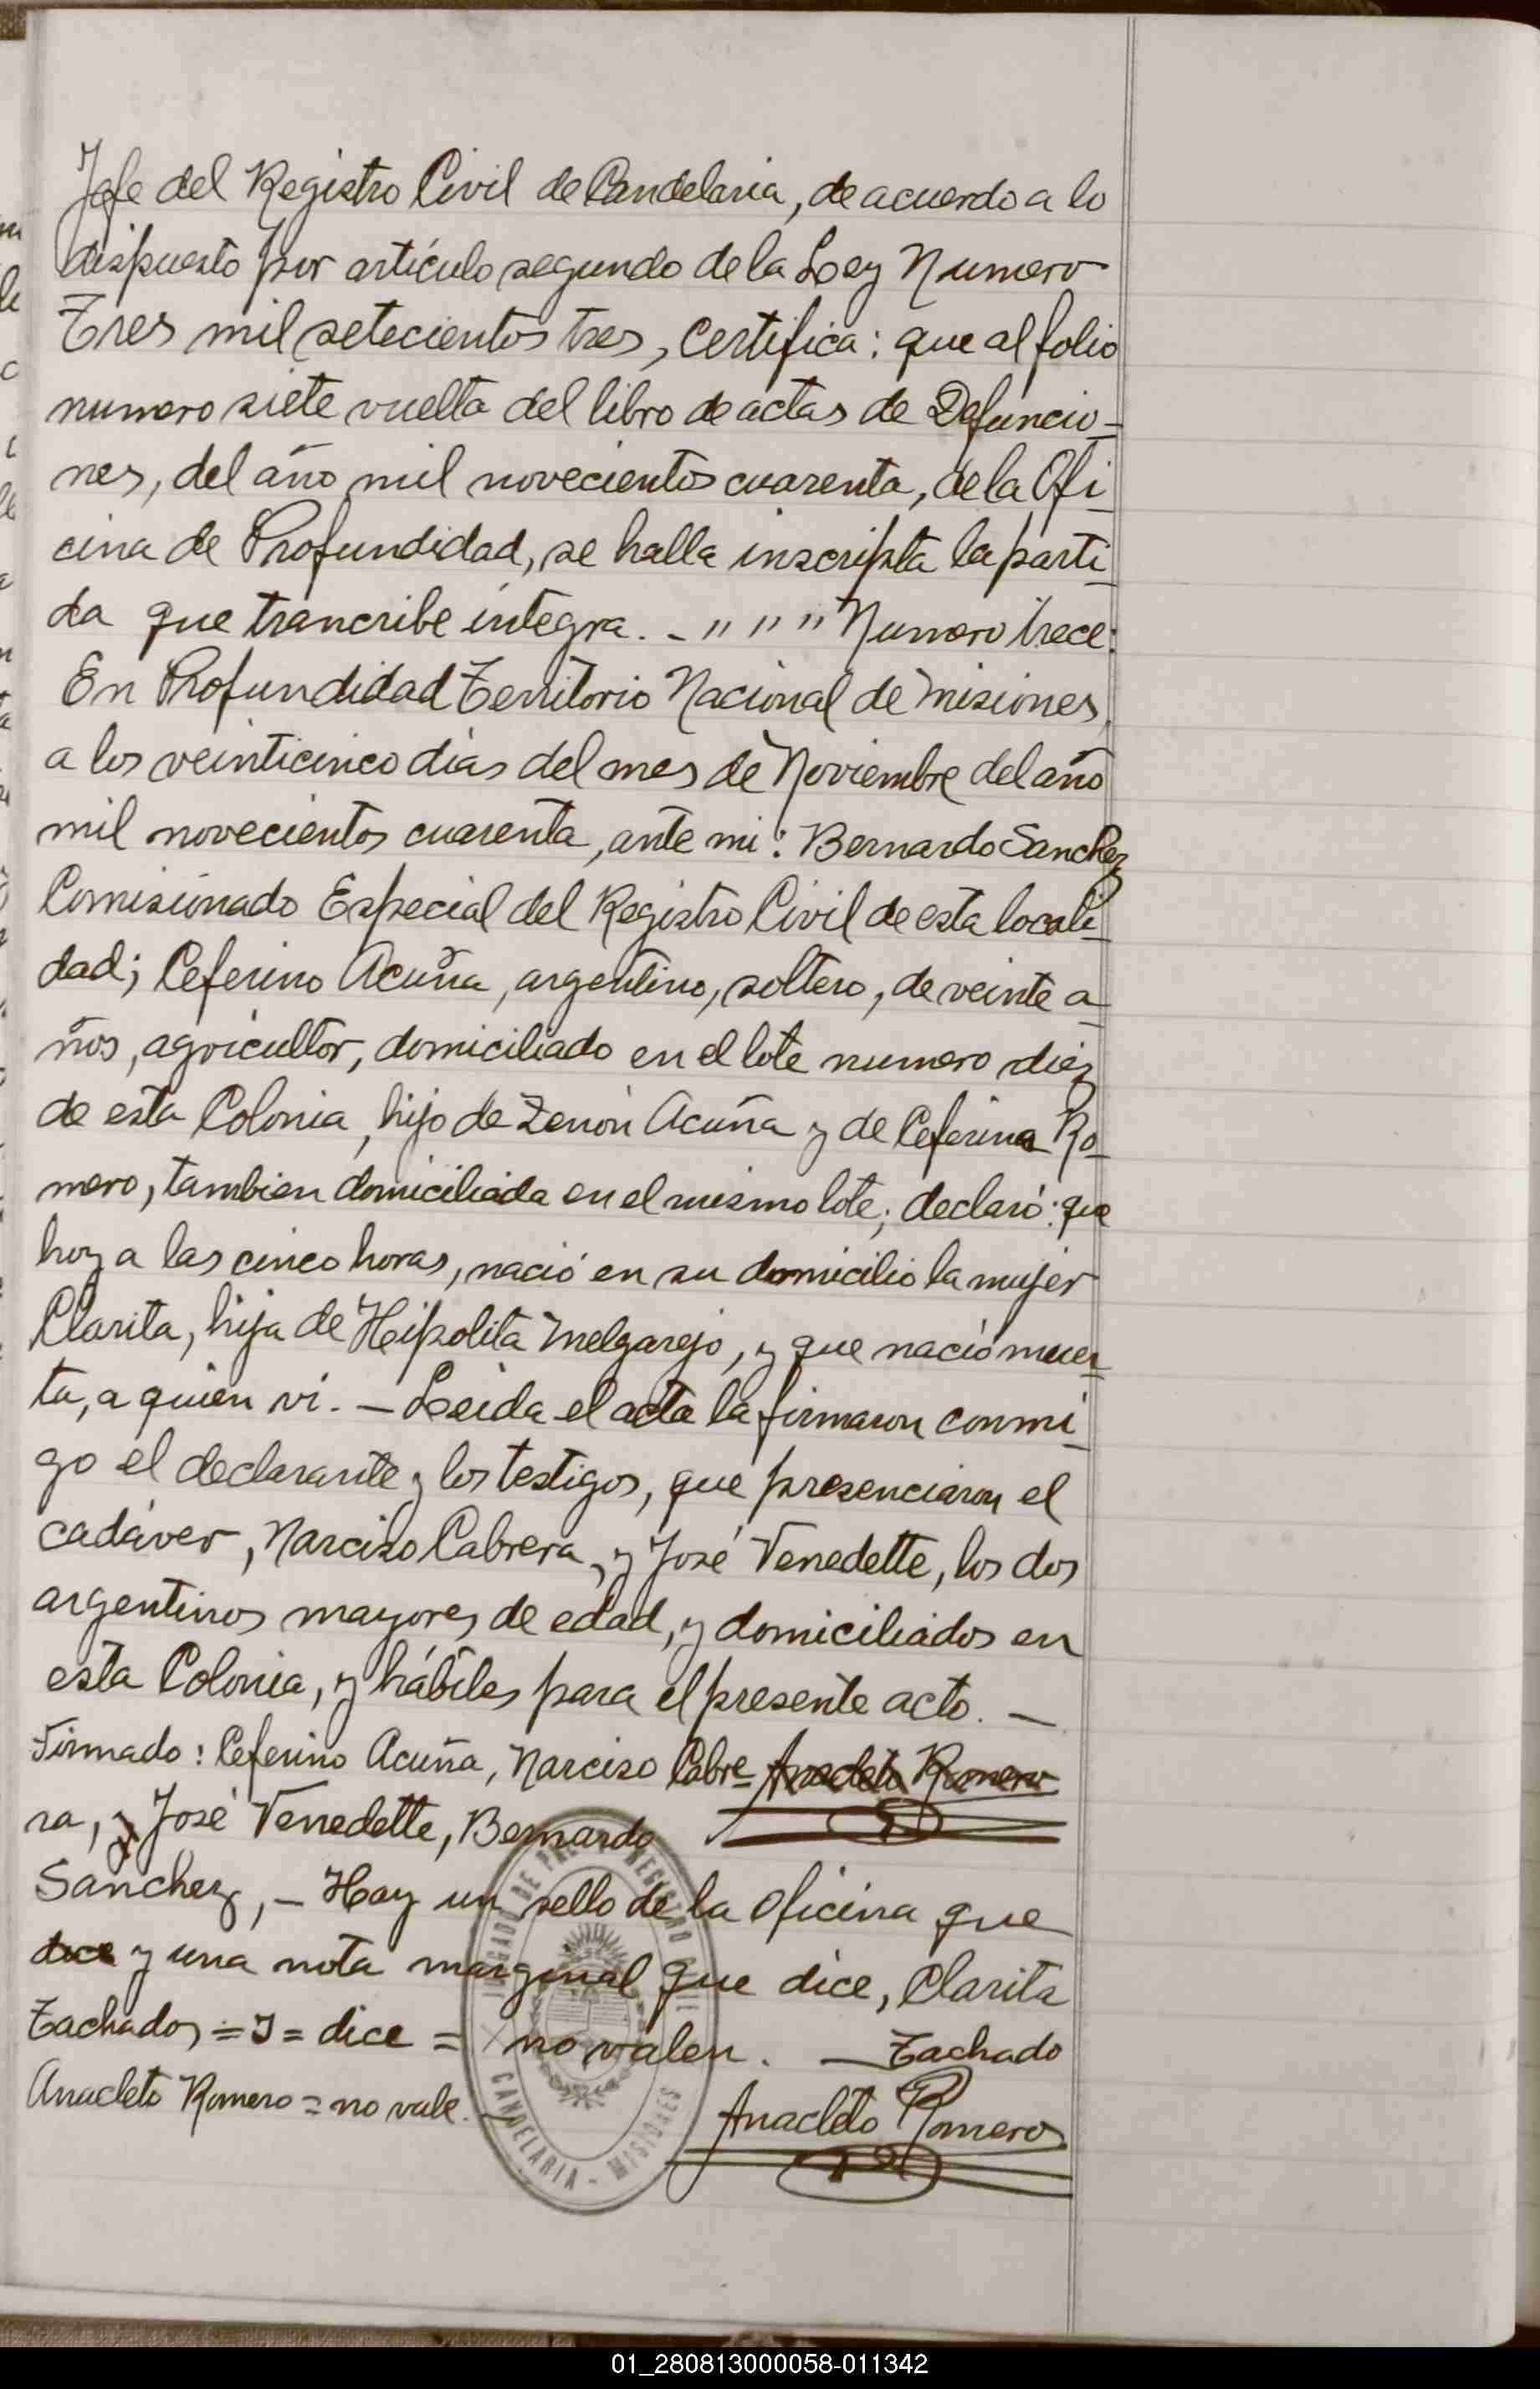 Jefe del Registro Civil de Candelaria, de acuerdo a lo
dispuesto por artículo segundo de la Ley Numero
Tres mil setecientos tres, certifica: que al folio
numero siete vuelta del libro de actas de Defuncio-
nes, del año mil novecientos cuarenta, de la Ofi-
cina de Profundidad, se halla inscripta la parti-
da que trancribe integra. - " " " Numero trece:
En Profundidad Territorio Nacional de Misiones,
a los veinticinco días del mes de Noviembre del año
mil novecientos cuarenta, ante mi: Bernardo Sanchez
Comisionado Especial del Registro Civil de esta locali-
dad; Ceferino Acuña, argentino, soltero, de veinte a-
ños, agricultor, domiciliado en el lote numero diez
de esta Colonia, hijo de Zenón Acuña y de Ceferina Ro-
mero, tambien domiciliada en el mismo lote; declaró: que
hoy a las cinco horas, nació en su domicilio la mujer
Clarita, hija de Heipolita Melgarejo, y que nació muer-
ta, a quien vi. — Leida el acta la firmaron conmi-
go el declarante y los testigos, que presenciaron el
cadáver, Narciso Cabrera, y José Venedette, los dos
argentinos mayores de edad, y domiciliados en
esta Colonia, y hábiles para el presente acto. —
Firmado: Ceferino Acuña, Narciso Cabre- Anacleto Romero
ra, y José Venedette, Bernardo
Sanchez, - Hay un sello de la oficina que
dice y una nota marginal que dice, Clarita
Tachados = y = dice = no valen. — Tachado
Anacleto Romero = no vale. —
Anacleto Romero
JUZGADO DE PAZ Y REGISTRO CIVIL
CANDELARIA - MISIONES
01_280813000058-011342